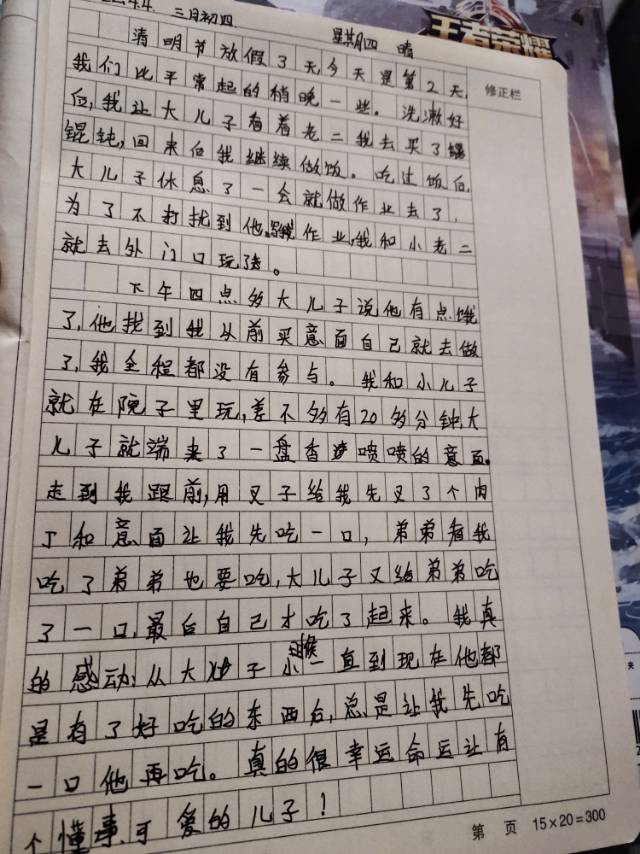 4.4. 三月初四 星期四 晴
王者荣耀
清明节放假了天,今天是第2天,
修正栏
我们比平常起的稍晚一些。洗漱好
后,我让大儿子看着老二我去买了
馄饨,回来后我继续做饭。吃过饭后,
大儿子休息了一会就做作业去了,
为了不打扰到他写作业,我和小老二
就去外门口玩。
下午四点多大儿子说他有点饿
了,他找到我从前买意面自己就去做
了,我全程都没有参与。我和小儿子
就在院子里玩,差不多有20多分钟大
儿子就端来了一盘香喷喷的意面。
走到我跟前,用叉子给我先叉了个肉
丁和意面让我先吃一口,弟弟看我
吃了弟弟也要吃,大儿子又给弟弟吃
了一口,最后自己才吃了起来。我真
的感动,从大儿子小时候一直到现在他都
是有了好吃的东西后,总是让我先吃
一口他再吃。真的很幸运命运让有
个懂事、可爱的儿子!
第 页 15×20=300